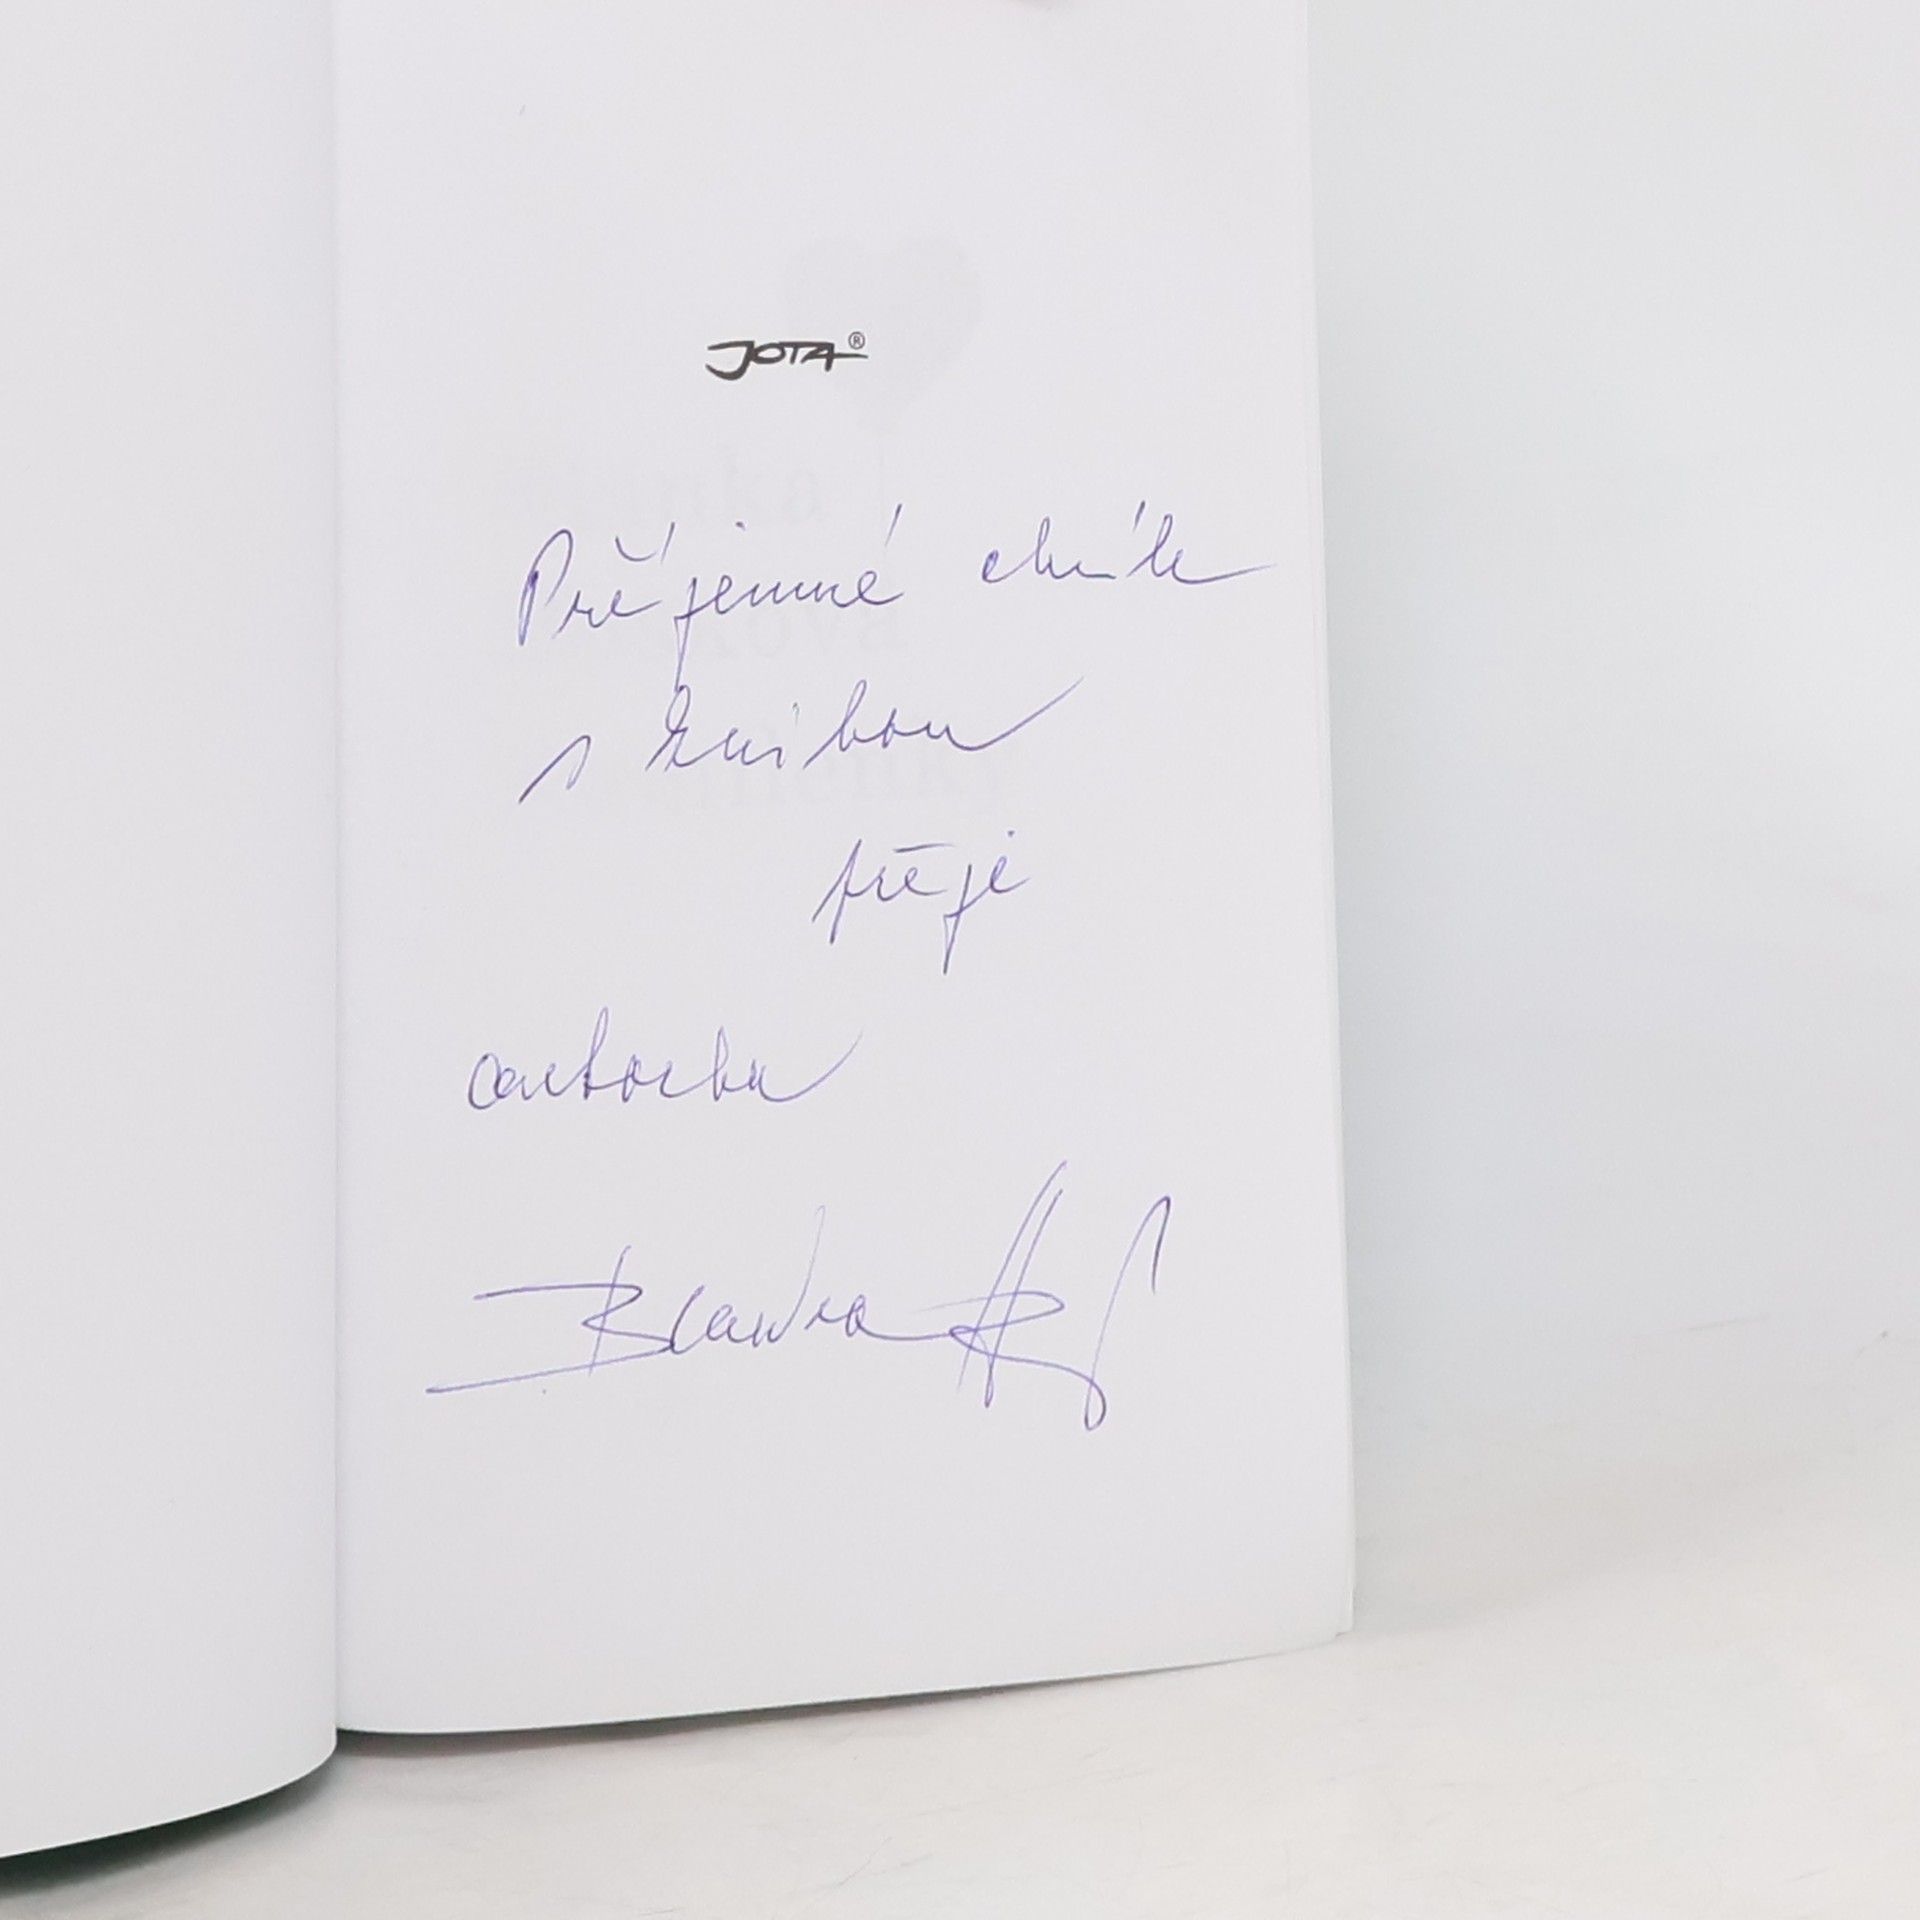 JOTA®
Příjemné chvíle
s knihou
přeje
autorka
Blanka